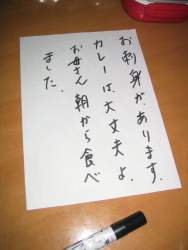 お刺身が、あります。
カレーは、大丈夫よ。
お母さん朝から食べ
ました。